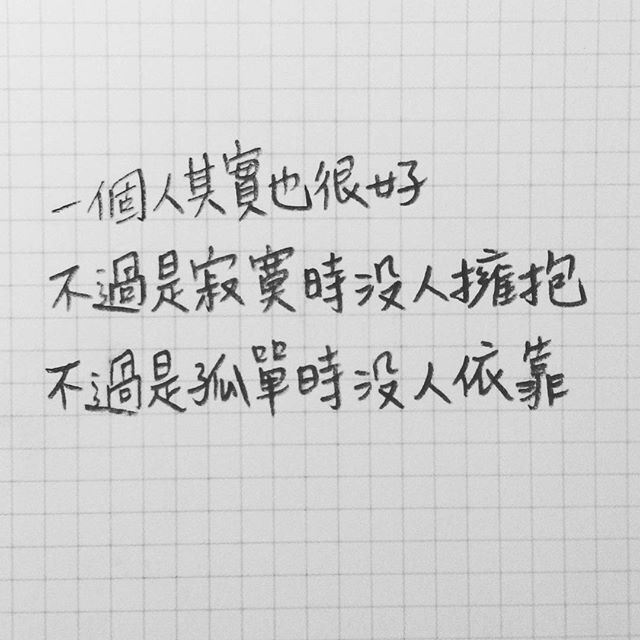 一個人其實也很好
不過是寂寞時没人擁抱
不過是孤單時没人依靠